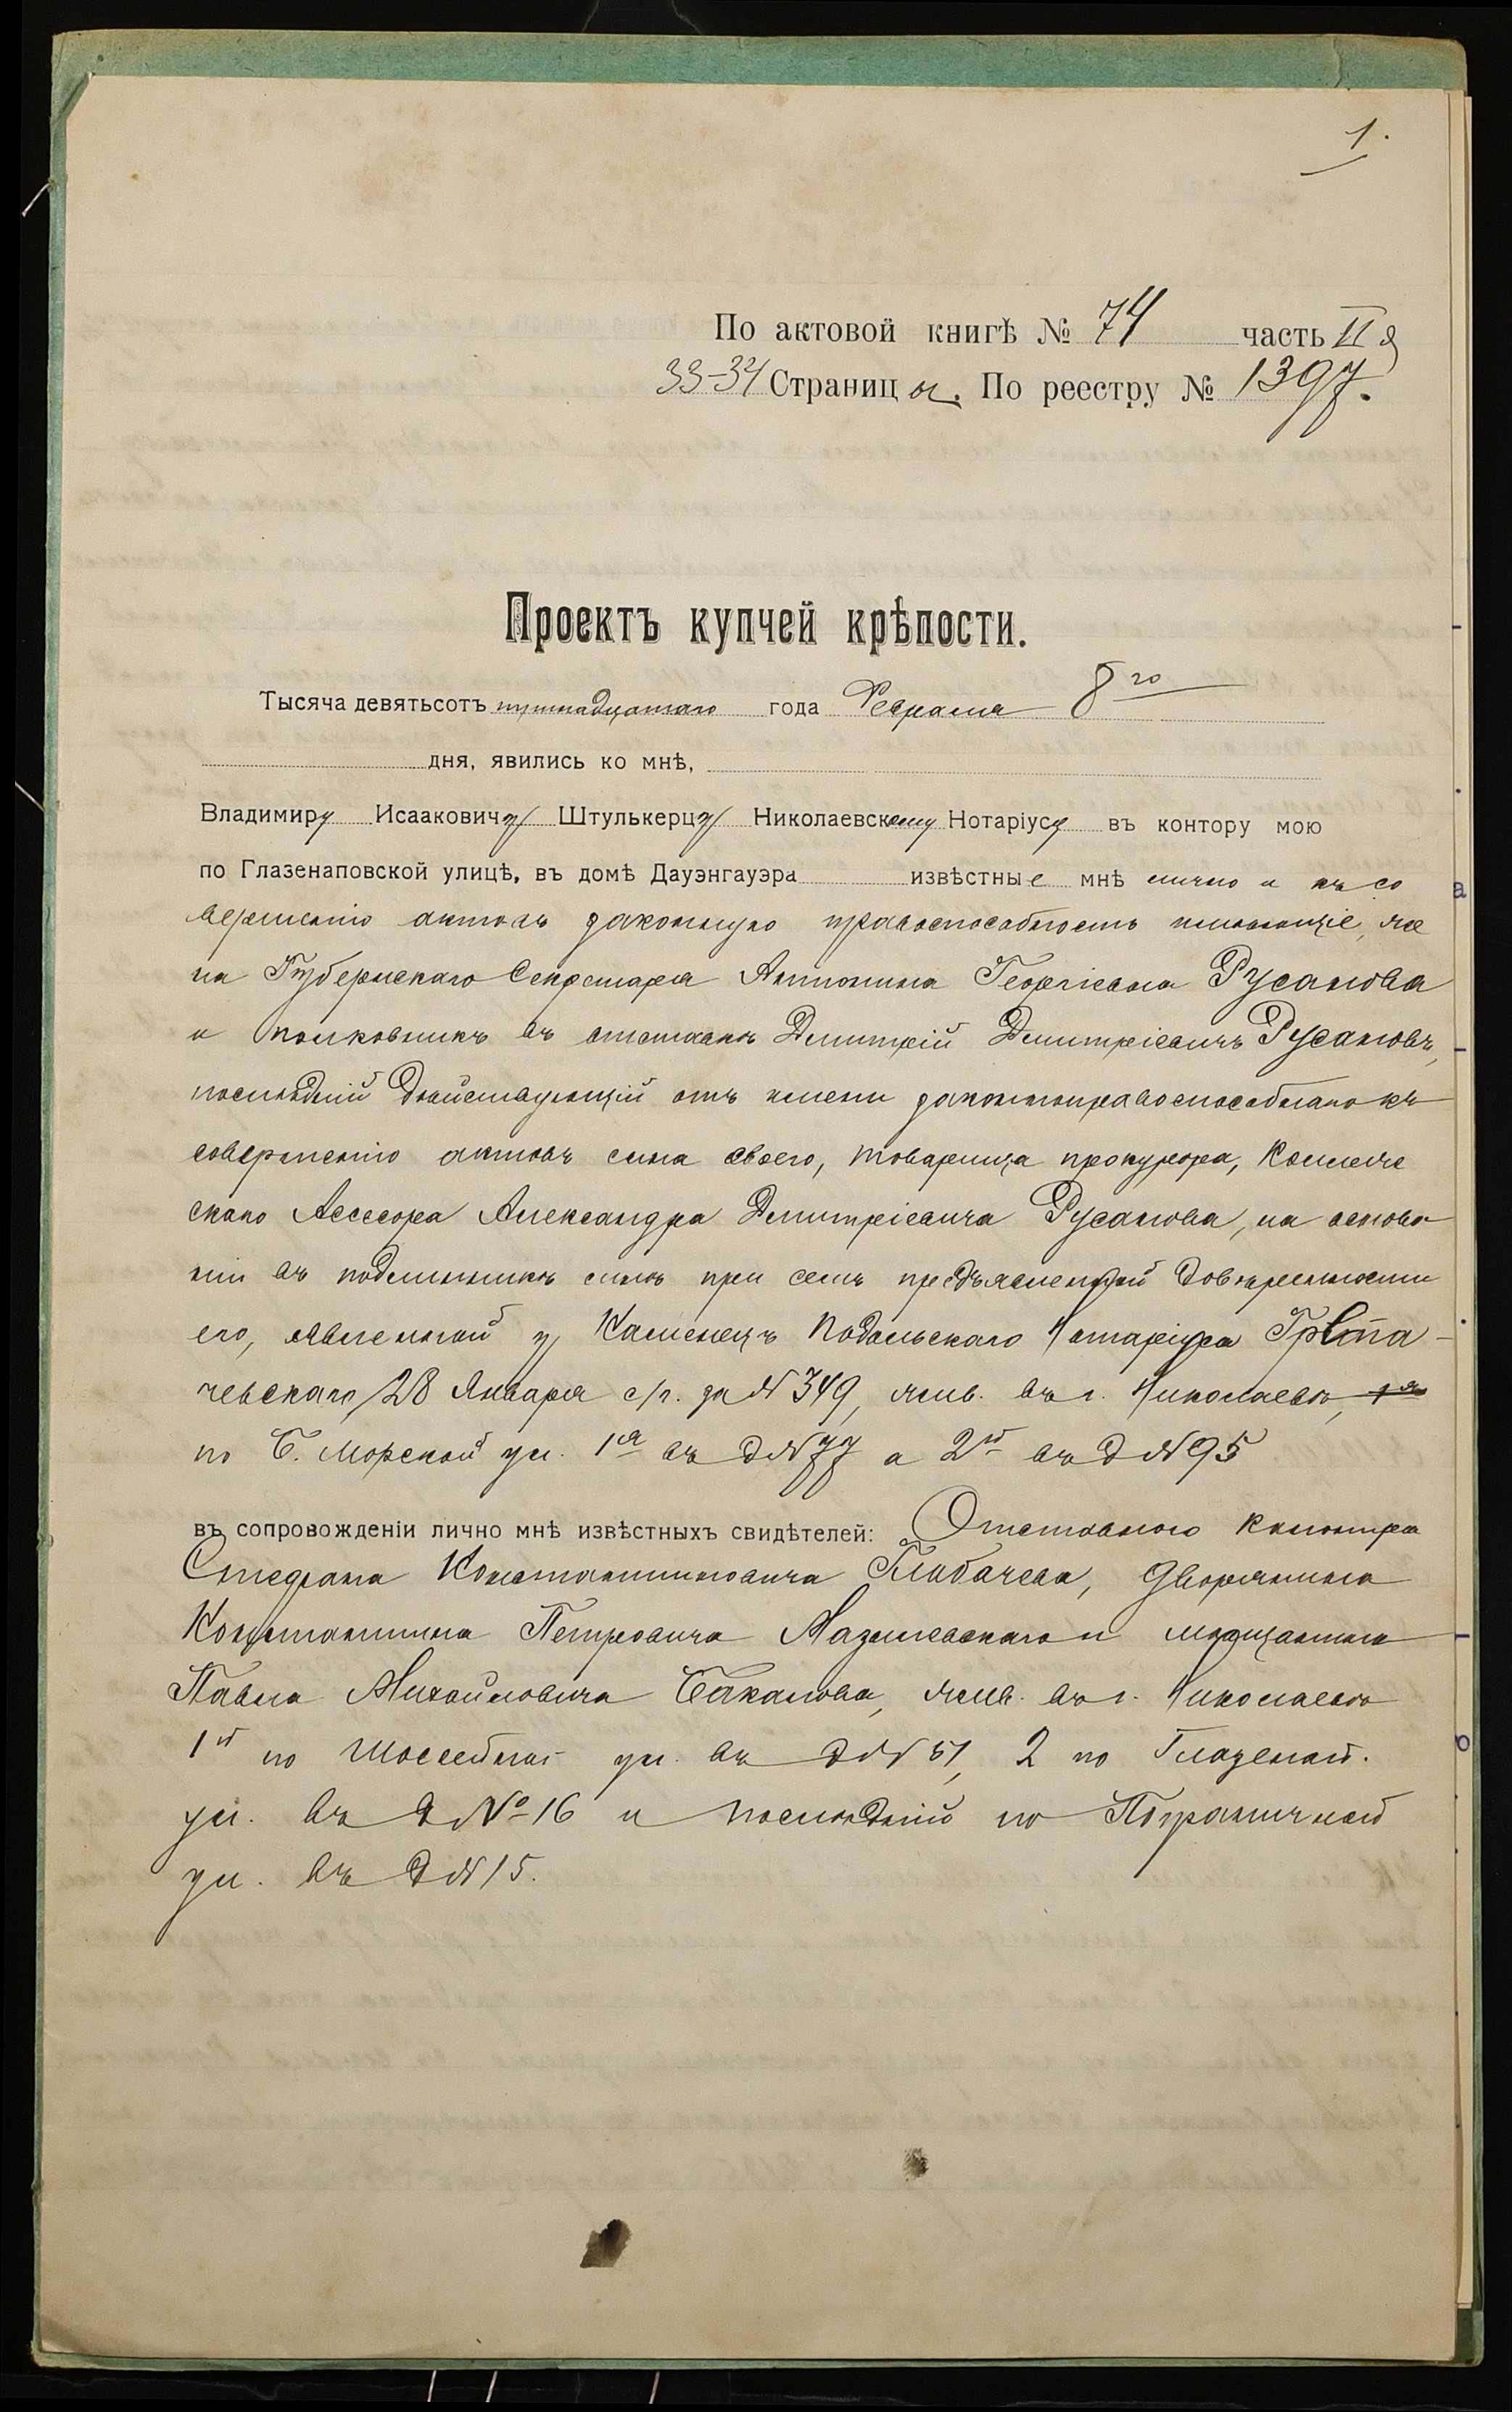 1.
По актовой книгѣ № 74 часть II я
33-34 Страницы. По реестру № 1397.
Проектъ купчей крѣпости.
Тысяча девятьсотъ пятнадцатаго года Февраля 8го
дня, явились ко мнѣ,
Владимиру Исааковичу Штулькерцу Николаевскому Нотаріусу въ контору мою
по Глазенаповской улицѣ, въ домѣ Дауэнгауэра извѣстные мнѣ лично и къ со
вершенію актовъ законную правоспособность имѣющіе, же
на Губернскаго Секретаря Антонина Георгіевна Русанова
и полковникъ въ отставкѣ Дмитрій Дмитріевичъ Русановъ,
послѣдній дѣйствующій отъ имени законноправоспособнаго къ
совершенію актовъ сына своего, товарища прокурора, Коллеж
скаго Ассесора Александра Дмитріевича Русанова, на основа
ніи въ подлинникѣ при семъ предъявленной довѣренности
его, явленной у Каменецъ Подольскаго Нотаріуса
чевскаго, 28 Января с/г. за № 349, жив. въ г. Николаевѣ, 1я
по Б. Морской ул. 1я въ д № 77 а 2й въ д № 95
въ сопровожденіи лично мнѣ извѣстныхъ свидѣтелей: Отставного
Стефана Константиновича Глабачева, дворянина
Константина Петровича Мазилевскаго и мѣщанина
Павла Михайловича Бакалова, жив. въ г. Николаевѣ
1й по Шоссейной ул. въ д № 51, 2 по Глазенап.
ул. въ д № 16 и послѣдній по Пограничной
ул. въ д № 15.